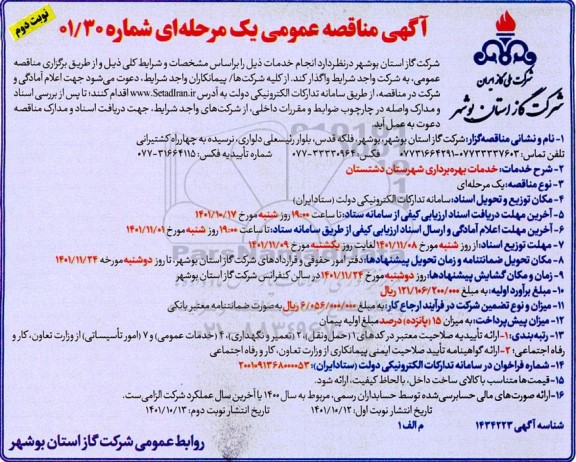 نوبت دوم
آگهی مناقصه عمومی یک مرحله‌ای شماره ۰۱/۳۰
شرکت ملی گاز ایران
شرکت گاز استان بوشهر
شرکت گاز استان بوشهر درنظر دارد انجام خدمات ذیل را براساس مشخصات و شرایط کلی ذیل و از طریق برگزاری مناقصه
عمومی، به شرکت واجد شرایط واگذار کند. از کلیه شرکت‌ها/ پیمانکاران واجد شرایط، دعوت می‌شود جهت اعلام آمادگی و
شرکت در مناقصه، از طریق سامانه تدارکات الکترونیکی دولت به آدرس www.SetadIran.ir اقدام کنند؛ تا پس از بررسی اسناد
و مدارک واصله در چارچوب ضوابط و مقررات داخلی، از شرکت‌های واجد شرایط، جهت دریافت اسناد و مدارک مناقصه
دعوت به عمل آید.
۱- نام و نشانی مناقصه‌گزار: شرکت گاز استان بوشهر، بوشهر، فلکه قدس، بلوار رئیسعلی دلواری، نرسیده به چهارراه کشتیرانی
تلفن تماس: ۰۷۷۳۳۳۳۷۶۰۳-۰۷۷۳۱۶۶۴۲۹۱ فکس: ۳۳۳۳۰۹۶۴-۰۷۷ شماره تأییدیه فکس: ۳۱۶۶۴۱۱۵-۰۷۷
۲- شرح خدمات: خدمات بهره‌برداری شهرستان دشتستان
۳- نوع مناقصه: یک مرحله‌ای
۴- مکان توزیع و تحویل اسناد: سامانه تدارکات الکترونیکی دولت (ستاد ایران)
۵- آخرین مهلت دریافت اسناد ارزیابی کیفی از سامانه ستاد: تا ساعت ۱۹:۰۰ روز شنبه مورخ ۱۴۰۱/۱۰/۱۷
۶- آخرین مهلت اعلام آمادگی و ارسال اسناد ارزیابی کیفی از طریق سامانه ستاد: تا ساعت ۱۹:۰۰ روز شنبه مورخ ۱۴۰۱/۱۱/۰۱
۷- مهلت توزیع اسناد: از روز شنبه مورخ ۱۴۰۱/۱۱/۰۸ لغایت روز یکشنبه مورخ ۱۴۰۱/۱۱/۰۹
۸- مکان تحویل ضمانتنامه و زمان تحویل پیشنهادها: دفتر امور حقوقی و قراردادهای شرکت گاز استان بوشهر، تا روز دوشنبه مورخه ۱۴۰۱/۱۱/۲۴
۹- زمان و مکان گشایش پیشنهادها: روز دوشنبه مورخ ۱۴۰۱/۱۱/۲۴ در سالن کنفرانس شرکت گاز استان بوشهر
۱۰- مبلغ برآورد اولیه: به مبلغ ۱۲۱/۱۰۶/۲۰۰/۰۰۰ ریال
۱۱- میزان و نوع تضمین شرکت در فرآیند ارجاع کار: به مبلغ ۶/۰۵۶/۰۰۰/۰۰۰ ریال به صورت ضمانتنامه معتبر بانکی
۱۲- میزان پیش‌پرداخت: به میزان ۱۵ (پانزده) درصد مبلغ اولیه پیمان
۱۳- رتبه‌بندی: ۱- ارائه تأییدیه صلاحیت معتبر در کدهای ۱ (حمل‌ونقل)، ۲ (تعمیر و نگهداری)، ۴ (خدمات عمومی) و ۷ (امور تأسیساتی) از وزارت تعاون، کار و
رفاه اجتماعی؛ ۲- ارائه گواهینامه تأیید صلاحیت ایمنی پیمانکاری از وزارت تعاون، کار و رفاه اجتماعی
۱۴- شماره فراخوان در سامانه تدارکات الکترونیکی دولت (ستاد ایران): ۲۰۰۱۰۹۱۳۶۸۰۰۰۰۵۳
۱۵- قیمت‌ها متناسب با کالای ساخت داخل، با لحاظ کیفیت، ارائه شود.
۱۶- ارائه صورت‌های مالی حسابرسی‌شده توسط حسابداران رسمی، مربوط به سال ۱۴۰۰ یا آخرین سال عملکرد شرکت الزامی ست.
تاریخ انتشار نوبت اول: ۱۴۰۱/۱۰/۱۲ تاریخ انتشار نوبت دوم: ۱۴۰۱/۱۰/۱۳
شناسه آگهی ۱۴۳۴۲۲۳ م الف ۱
روابط عمومی شرکت گاز استان بوشهر